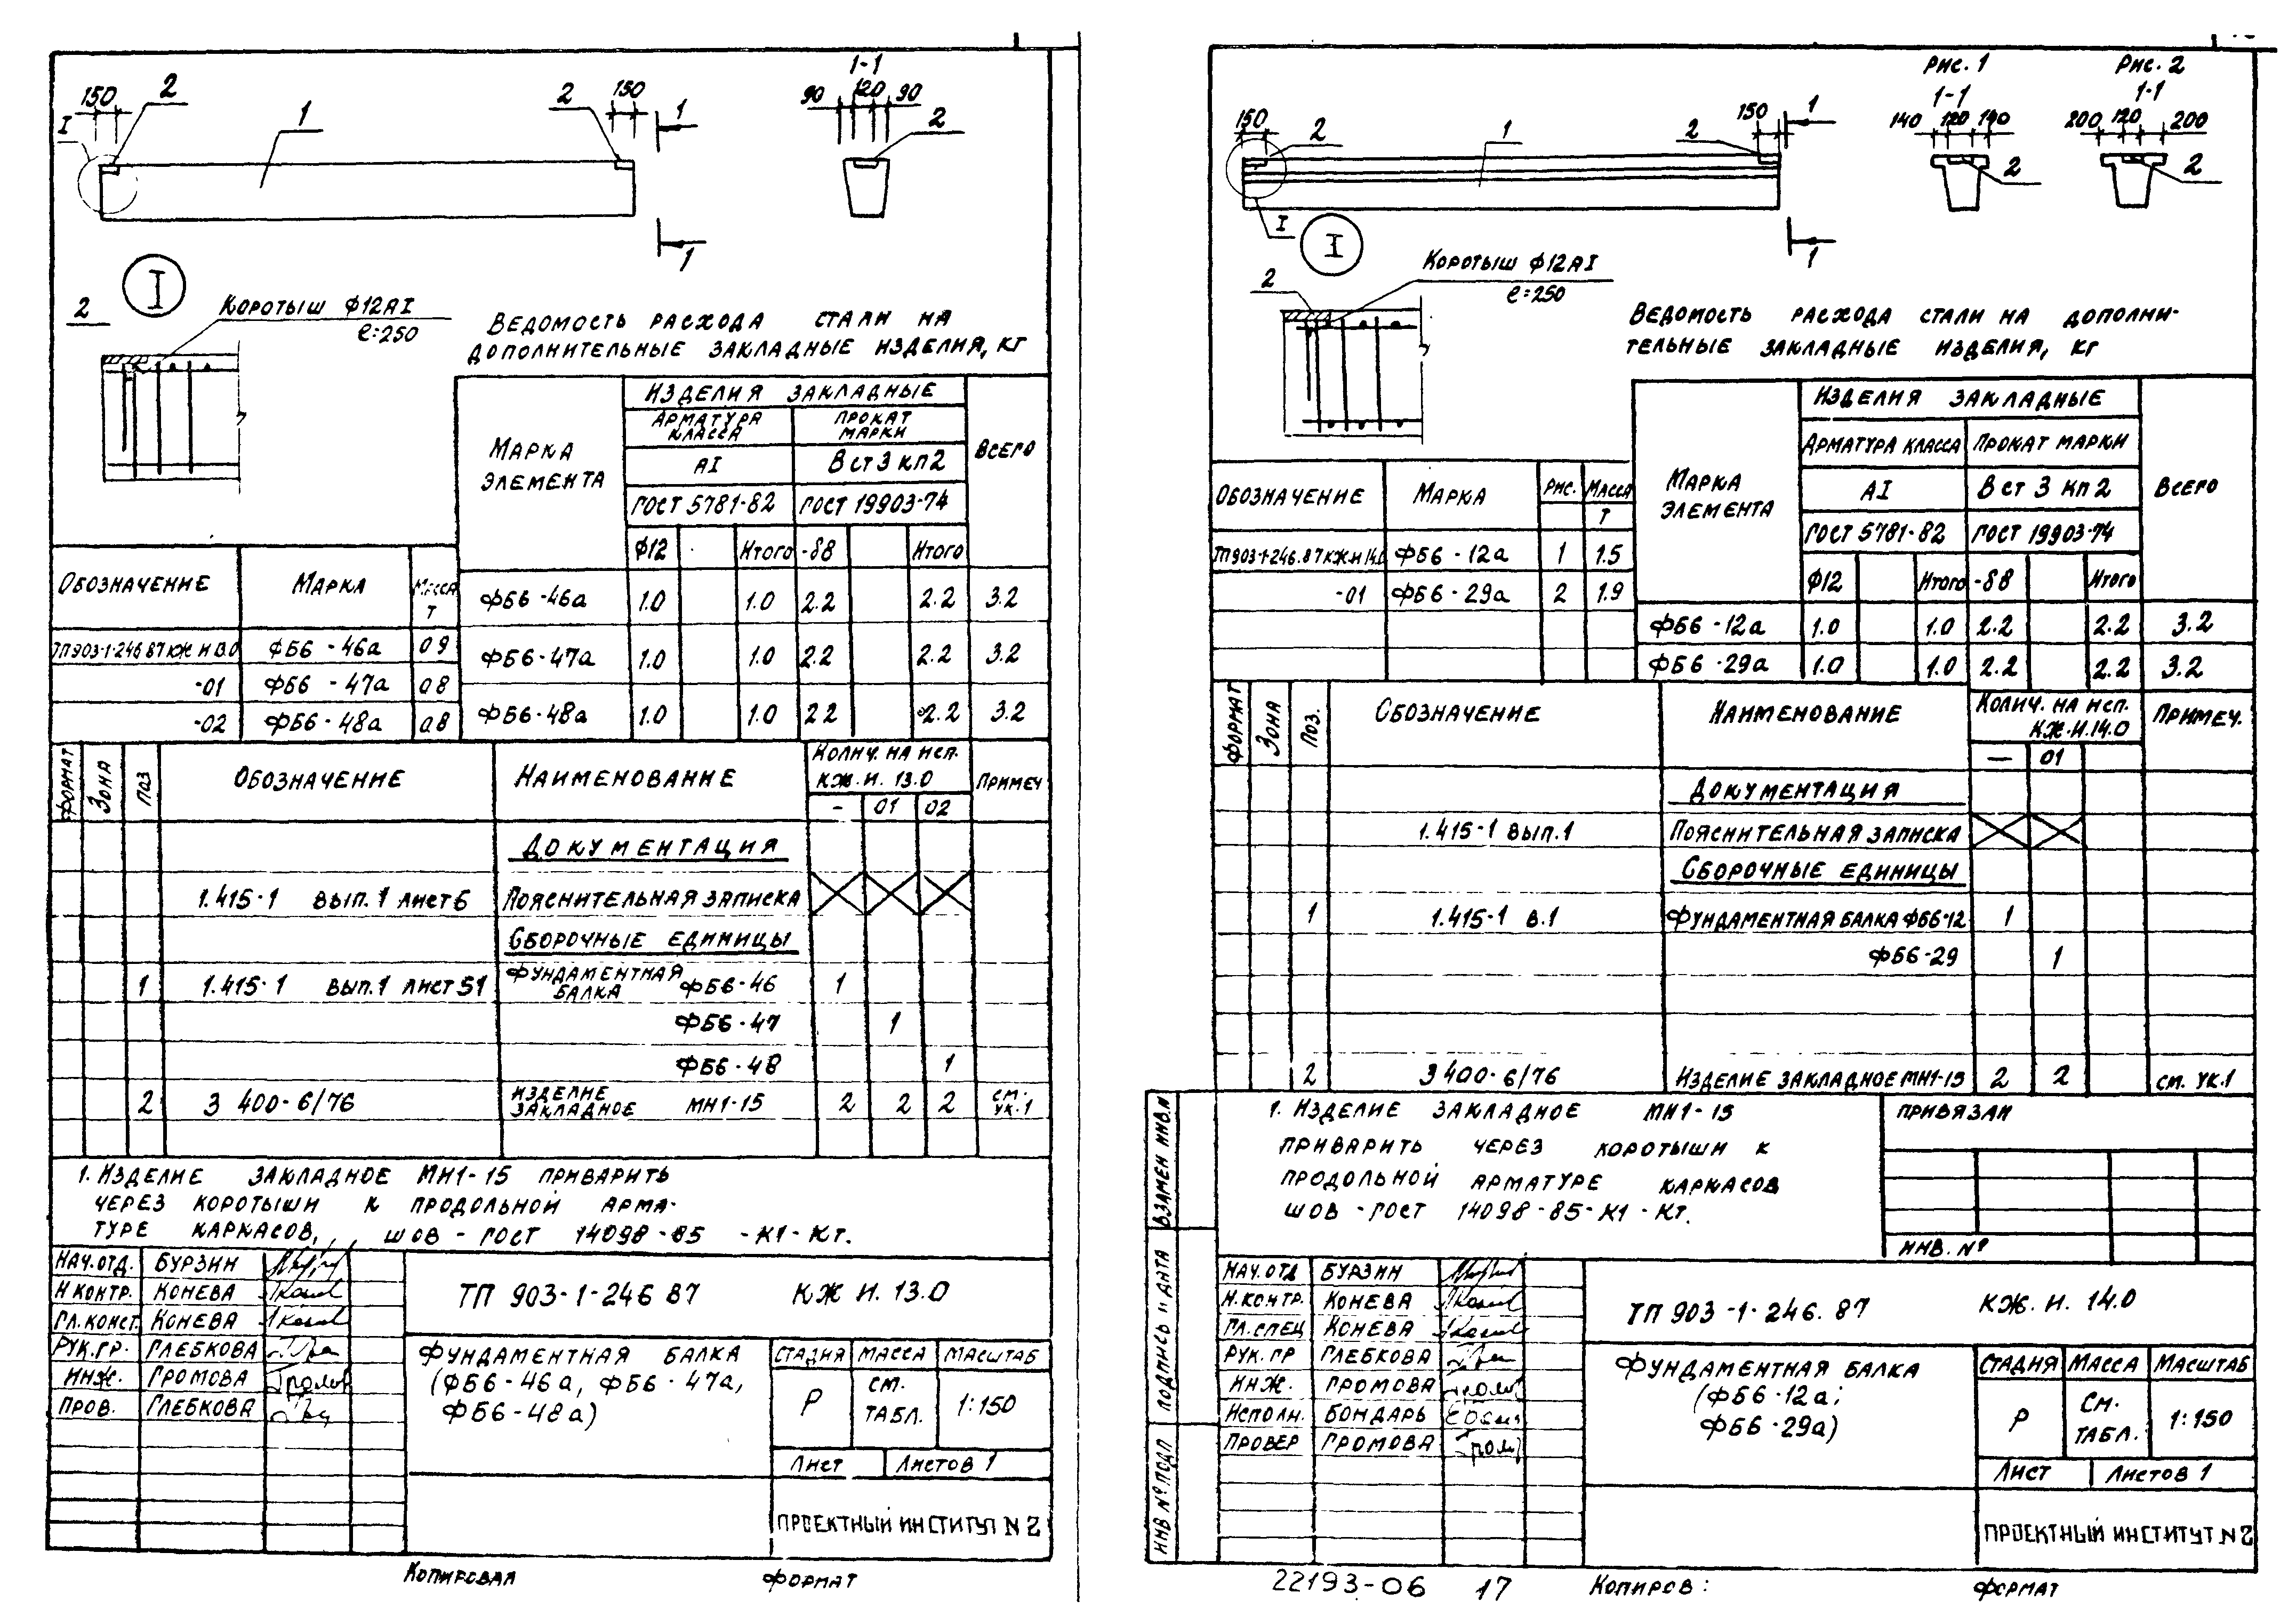 150 2 1 2 150 1
I
1-1
90 120 90
2
1
I
2
Коротыш Ф12АI
ℓ=250
Ведомость расхода стали на
дополнительные закладные изделия, кг
Марка элемента
Изделия закладные
Всего
Арматура класса
Прокат марки
АI
В ст 3 кп 2
ГОСТ 5781-82
ГОСТ 19903-74
Ф12 Итого -δ8 Итого
ФБ6-46а 1.0 1.0 2.2 2.2 3.2
ФБ6-47а 1.0 1.0 2.2 2.2 3.2
ФБ6-48а 1.0 1.0 2.2 2.2 3.2
Обозначение Марка Масса т
ТП903-1-246.87 КЖ И 13.0 ФБ6-46а 0.9
-01 ФБ6-47а 0.8
-02 ФБ6-48а 0.8
Формат Зона Поз Обозначение Наименование Колич. на исп. КЖ.И. 13.0 Примеч
- 01 02
Документация
1.415-1 вып.1 лист 6 Пояснительная записка
Сборочные единицы
1 1.415-1 вып.1 лист 51 Фундаментная балка ФБ6-46 1
ФБ6-47 1
ФБ6-48 1
2 3 400-6/76 Изделие закладное МН1-15 2 2 2 см. ук.1
1. Изделие закладное МН1-15 приварить
через коротыши к продольной арма-
туре каркасов, шов - ГОСТ 14098-85 -К1-Кт.
Нач.отд. Бурзин
Н контр. Конева
Гл.конст. Конева
Рук.гр. Глебкова
Инж. Громова
Пров. Глебкова
ТП 903-1-246 87 КЖ И. 13.0
Фундаментная балка
(ФБ6-46а, ФБ6-47а,
ФБ6-48а)
Стадия Масса Масштаб
Р см. табл. 1:150
Лист Листов 1
Проектный институт N2
Копировал формат
150 2 1 2 150 1
I
1
Рис. 1
1-1
140 120 140
2
Рис. 2
1-1
200 120 200
2
I
2
Коротыш Ф12АI
ℓ=250
Ведомость расхода стали на дополни-
тельные закладные изделия, кг
Марка элемента
Изделия закладные
Всего
Арматура класса Прокат марки
АI В ст 3 кп 2
ГОСТ 5781-82 ГОСТ 19903-74
Ф12 Итого -δ8 Итого
ФБ6-12а 1.0 1.0 2.2 2.2 3.2
ФБ6-29а 1.0 1.0 2.2 2.2 3.2
Обозначение Марка Рис. Масса т
ТП903-1-246.87 КЖ И 14.0 ФБ6-12а 1 1.5
-01 ФБ6-29а 2 1.9
Формат Зона Поз. Обозначение Наименование Колич. на исп. КЖ.И.14.0 Примеч.
— 01
Документация
1.415-1 вып.1 Пояснительная записка
Сборочные единицы
1 1.415-1 в.1 Фундаментная балка ФБ6-12 1
ФБ6-29 1
2 3 400-6/76 Изделие закладное МН1-15 2 2 см. ук.1
1. Изделие закладное МН1-15
приварить через коротыши к
продольной арматуре каркасов
шов - ГОСТ 14098-85-К1-Кт.
Привязан
Инв. №
Взамен инв.№
Подпись и дата
Инв № подл
Нач.отд Бурзин
Н.контр. Конева
Гл.спец Конева
Рук.гр Глебкова
Инж. Громова
Исполн. Бондарь
Провер Громова
ТП 903-1-246.87 КЖ.И. 14.0
Фундаментная балка
(ФБ6-12а;
ФБ6-29а)
Стадия Масса Масштаб
Р см. табл. 1:150
Лист Листов 1
Проектный институт N2
22193-06 17 Копиров: формат